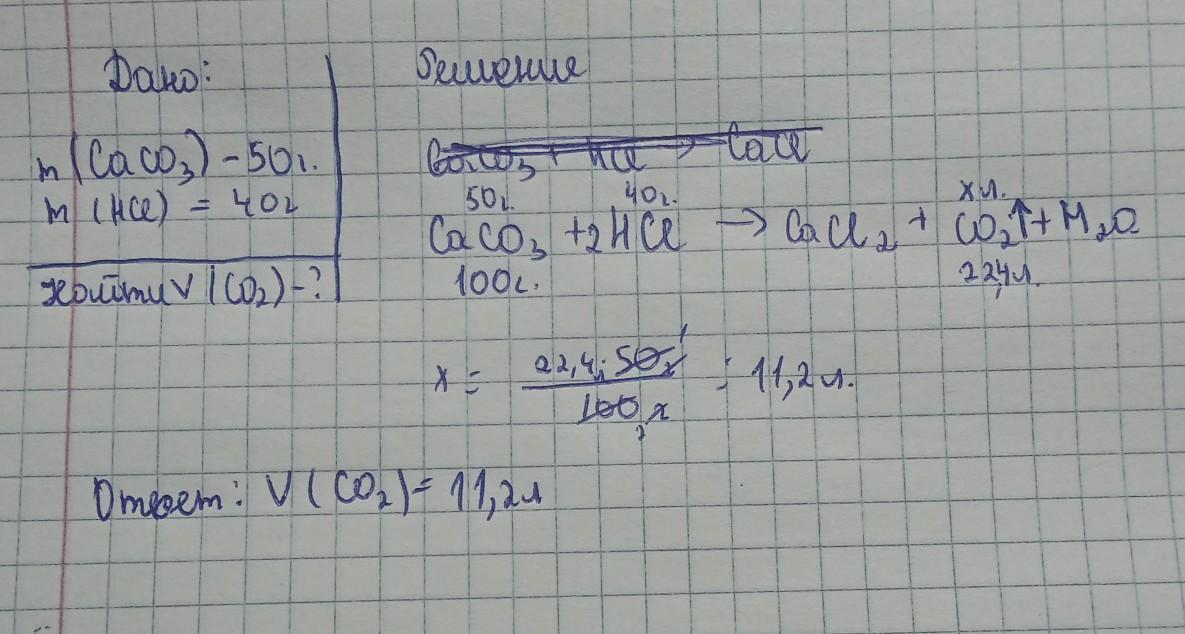 Дано:
m (CaCO₃) - 50г.
m (HCl) = 40г
найти V (CO₂) - ?
Решение
CaCO₃ + HCl → CaCl
50г. 40г. x л.
CaCO₃ + 2HCl → CaCl₂ + CO₂↑ + H₂O
100г. 22,4л.
x = 22,4л · 50г / 100г = 11,2 л.
Ответ: V (CO₂) = 11,2л